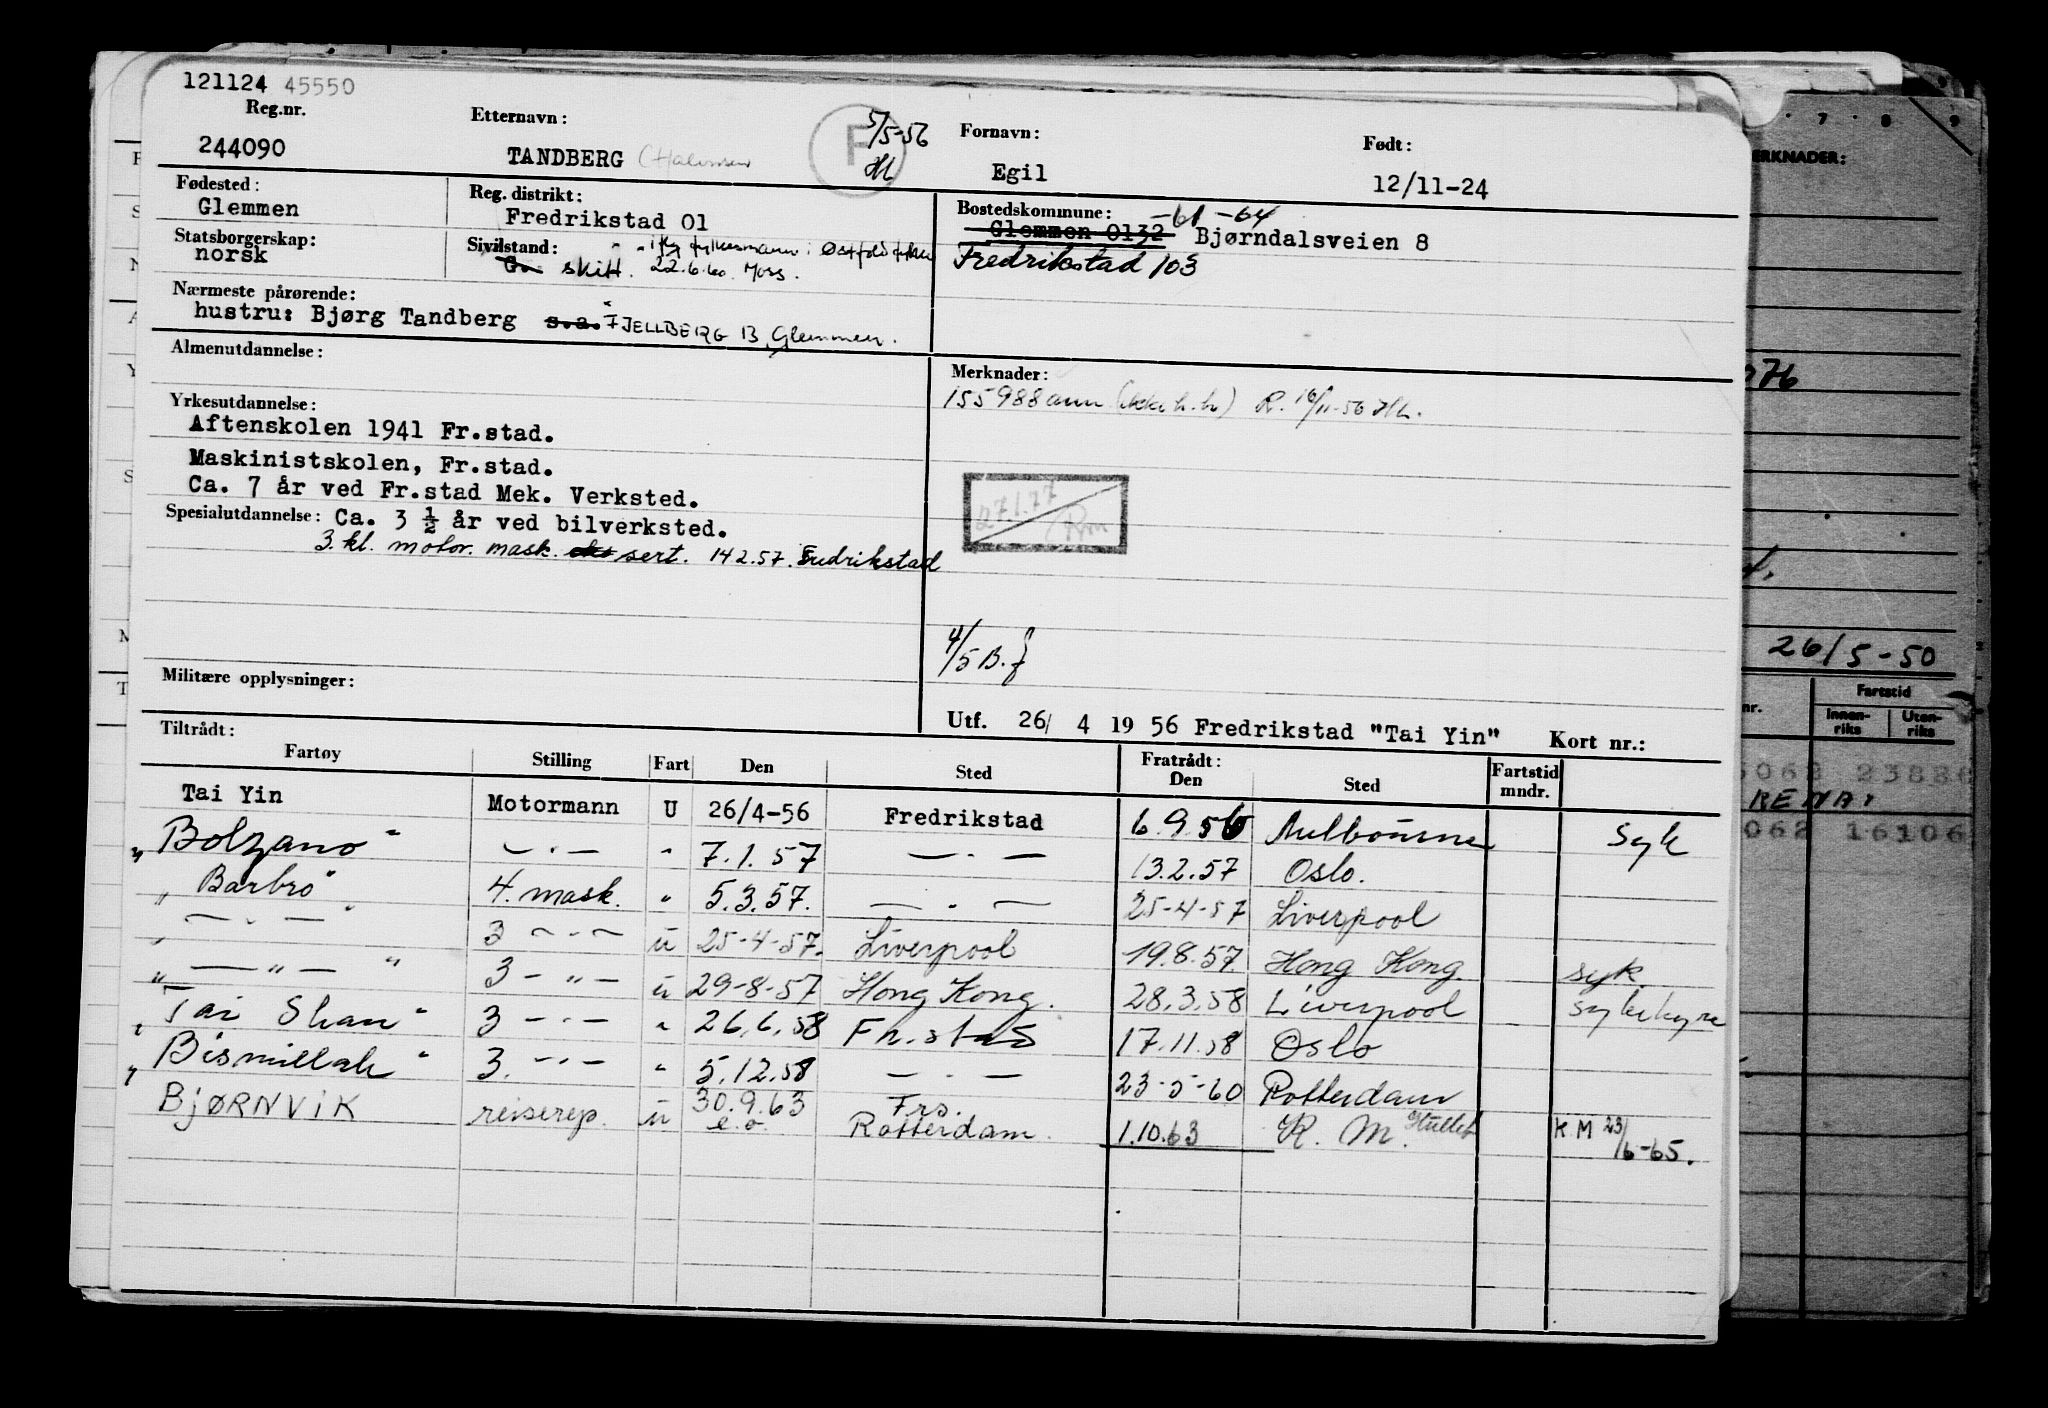 121124 45550
Reg.nr. Etternavn: 5/5-56 Fornavn: Født:
244090 TANDBERG (Halvorsen F Hl Egil 12/11-24
Fødested: Reg. distrikt: Bostedskommune: -61 -64
Glemmen Fredrikstad 01 Glemmen 0132 Bjørndalsveien 8
Statsborgerskap: Sivilstand: ifg fylkesmann i Østfold fylke Fredrikstad 103
norsk Gv. skilt. 22.6.60. Moss.
Nærmeste pårørende:
hustru: Bjørg Tandberg s.a. FJELLBERG 13, Glemmen.
Almenutdannelse: Merknader:
155988 ann (ikke h.h) R. 16/11-56 Hl.
Yrkesutdannelse:
Aftenskolen 1941 Fr.stad.
Maskinistskolen, Fr.stad.
Ca. 7 år ved Fr.stad Mek. Verksted.
27.1.77
Rm
Spesialutdannelse: Ca. 3 ½ år ved bilverksted.
3. kl. motor. mask. sert. 14 2.57. Fredrikstad
4/5 B.f
Militære opplysninger:
Utf. 26/ 4 19 56 Fredrikstad "Tai Yin" Kort nr.:
Tiltrådt: Fratrådt:
Fartøy Stilling Fart Den Sted Den Sted Fartstid mndr.
Tai Yin Motormann U 26/4-56 Fredrikstad 6.9.56 Melbourne Syk
" Bolzano " — . — " 7.1.57 — . — 13.2.57 Oslo.
" Barbro " 4. mask. " 5.3.57. — " — 25-4-57 Liverpool
" — " — " 3 — " — u 25-4-57. Liverpool 19.8.57 Hong Kong syk.
" — " — " 3 — " — u 29-8-57 Hong Kong. 28.3.58 Liverpool sykehyre
" Tai Shan " 3 — . — " 26.6.58 Fr.stad 17.11.58 Oslo
" Bismillah " 3. — . — " 5.12.58 — . — 23-5-60 Rotterdam
BJØRNVIK reiserep. u 30.9.63 Frs. 1.10.63 R. M. KM 23/6-65.
e.o. Rotterdam.
7 8 9
ERKNADER:
076
26/5-50
nr. Fartstid
Innen-riks Uten-riks
5062 23886
RENA.
062 16106